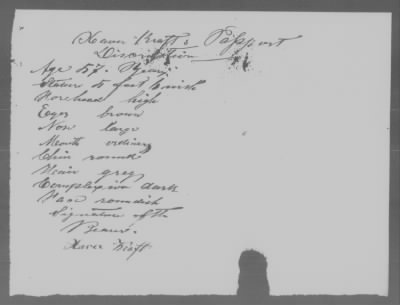 Xaver Kraft's Passport
Discribtion
Age 57. Years
Statur 5 feet 6 inish
Forehead high
Eyes brown
Nose large
Mouth ordinary
Chin round
Heair grey
Complexion dark
Face roundish
Signature of the
Bearer.
Xaver Kraft